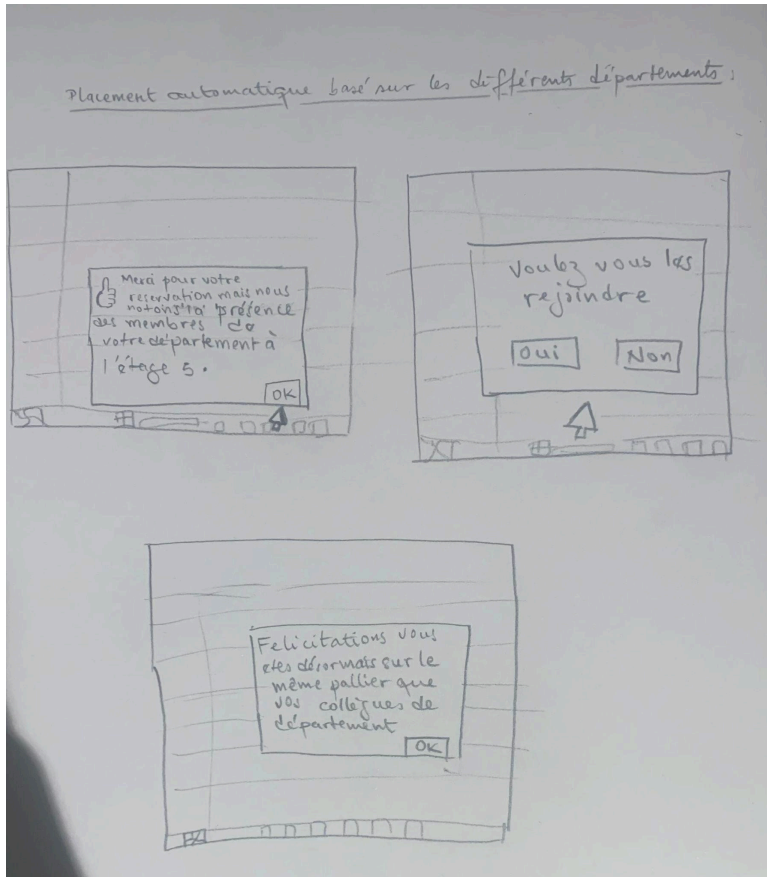 Placement automatique basé sur les différents départements :
Merci pour votre
reservation mais nous
notons la présence
des membres de
votre département à
l'étage 5.
OK
Voulez vous les
rejoindre
Oui
Non
Felicitations vous
etes désormais sur le
même pallier que
vos collègues de
département
OK